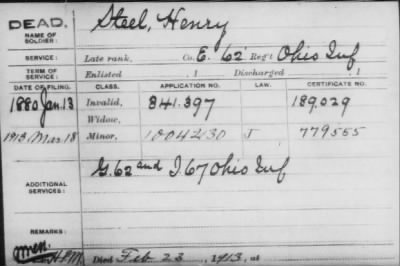 DEAD.
NAME OF SOLDIER: Steel, Henry
SERVICE: Late rank, Co. E. 62 Reg't Ohio Inf
TERM OF SERVICE: Enlisted , 1 Discharged , 1
DATE OF FILING. CLASS. APPLICATION NO. LAW. CERTIFICATE NO.
1880 Jan. 13 Invalid, 341.397 189.029
Widow,
1913 Mar 18 Minor, 1004230 J 779555
ADDITIONAL SERVICES: G. 62 and I. 67 Ohio Inf
REMARKS:
Died Feb. 23, 1913, at